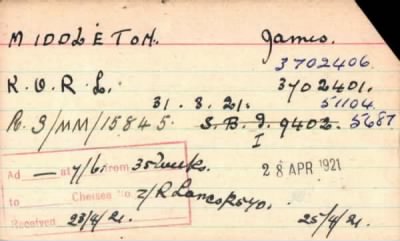 MIDDLETON. James.
3702406.
K.O.R.L. 3702401.
31.8.21. 51104.
R.S/MM/15845. S.B.I. 9402. 5687
I
Ad — at 7/6. from 35 weeks. 28 APR 1921
to Chelsea No. 2/R Lancs
Received 23/4/21. 25/4/21.